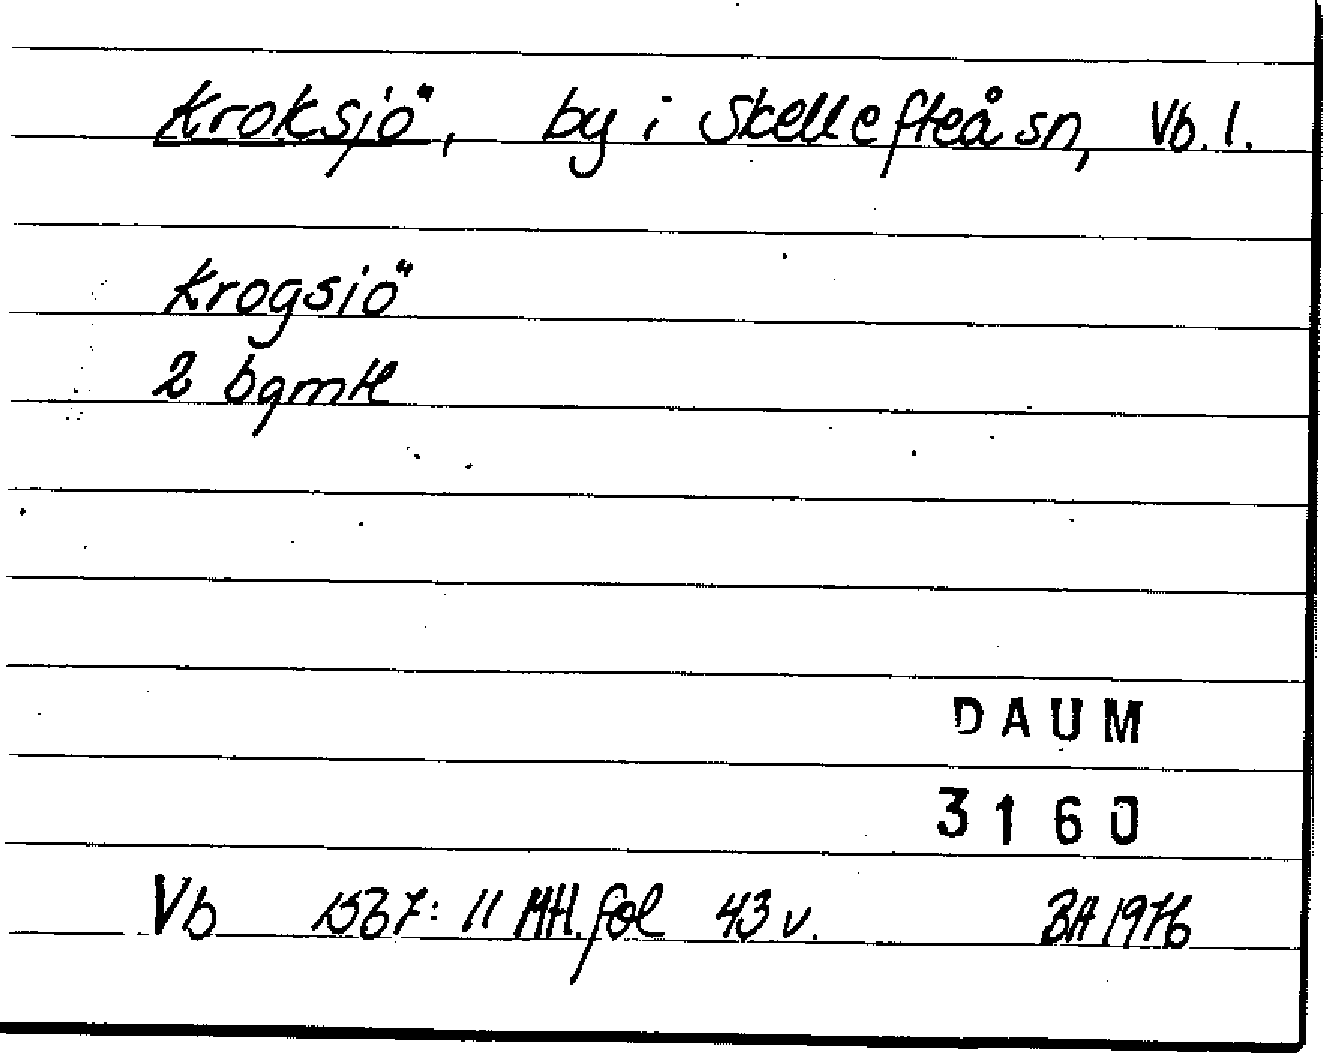 Kroksjö, by i Skellefteå sn, Vb. l.
Krogsiö
2 bgmtl
DAUM
3160
Vb 1567: 11 MH. fol 43 v. BA 1976